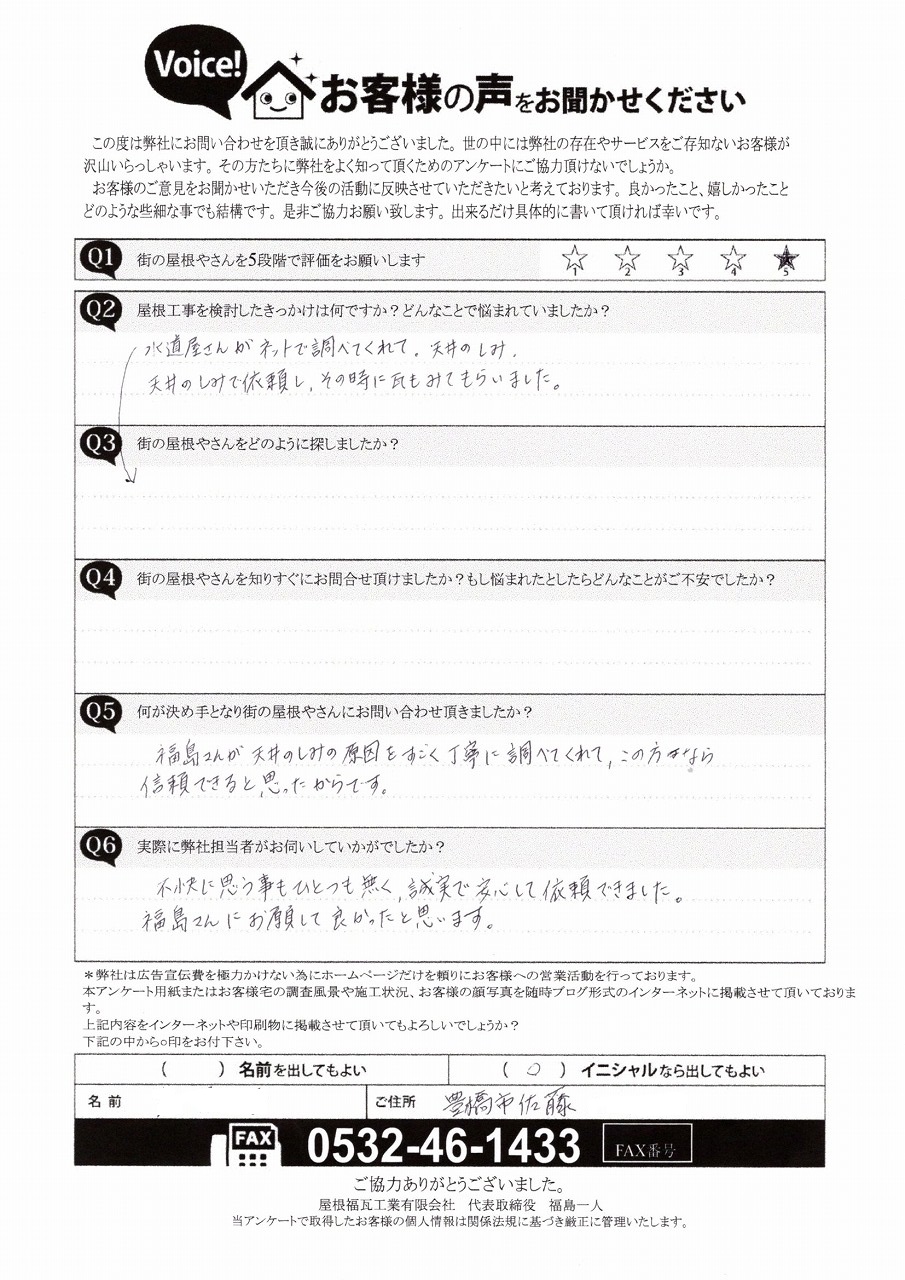 Voice!
お客様の声をお聞かせください
この度は弊社にお問い合わせを頂き誠にありがとうございました。世の中には弊社の存在やサービスをご存知ないお客様が
沢山いらっしゃいます。その方たちに弊社をよく知って頂くためのアンケートにご協力頂けないでしょうか。
お客様のご意見をお聞かせいただき今後の活動に反映させていただきたいと考えております。良かったこと、嬉しかったこと
どのような些細な事でも結構です。是非ご協力お願い致します。出来るだけ具体的に書いて頂ければ幸いです。
Q1 街の屋根やさんを5段階で評価をお願いします ☆1 ☆2 ☆3 ☆4 ★5
Q2 屋根工事を検討したきっかけは何ですか？どんなことで悩まれていましたか？
水道屋さんがネットで調べてくれて。天井のしみ.
天井のしみで依頼し、その時に瓦もみてもらいました。
Q3 街の屋根やさんをどのように探しましたか？
Q4 街の屋根やさんを知りすぐにお問合せ頂けましたか？もし悩まれたとしたらどんなことがご不安でしたか？
Q5 何が決め手となり街の屋根やさんにお問い合わせ頂きましたか？
福島さんが天井のしみの原因をすごく丁寧に調べてくれて、この方なら
信頼できると思ったからです。
Q6 実際に弊社担当者がお伺いしていかがでしたか？
不快に思う事もひとつも無く、誠実で安心して依頼できました。
福島さんにお願して良かったと思います。
＊弊社は広告宣伝費を極力かけない為にホームページだけを頼りにお客様への営業活動を行っております。
本アンケート用紙またはお客様宅の調査風景や施工状況、お客様の顔写真を随時ブログ形式のインターネットに掲載させて頂いておりま
す。
上記内容をインターネットや印刷物に掲載させて頂いてもよろしいでしょうか？
下記の中から○印をお付下さい。
（　　）名前を出してもよい （ ○ ）イニシャルなら出してもよい
名前 ご住所 豊橋市佐藤
FAX 0532-46-1433 FAX番号
ご協力ありがとうございました。
屋根福瓦工業有限会社　代表取締役　福島一人
当アンケートで取得したお客様の個人情報は関係法規に基づき厳正に管理いたします。